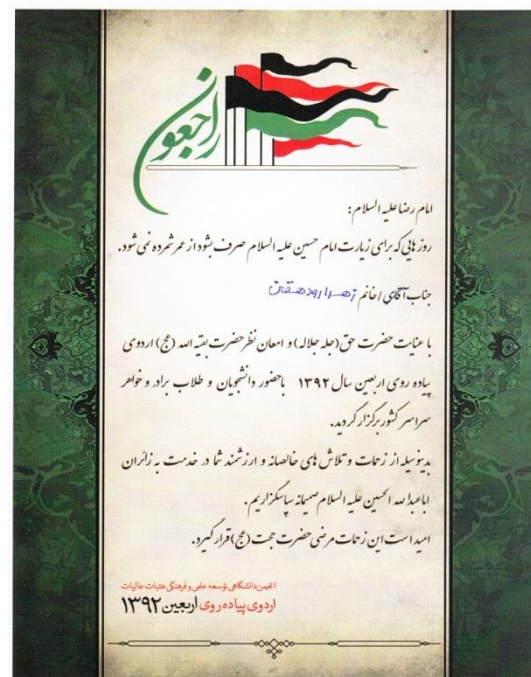 راجعون
امام رضا علیه السلام:
روزهایی که برای زیارت امام حسین علیه السلام صرف بشود از عمر شمرده نمی شود.
جناب آقای / خانم زهرا
با عنایت حضرت حق (جله جلاله) و امعان نظر حضرت بقیه الله (عج) اردوی
پیاده روی اربعین سال ۱۳۹۲ باحضور دانشجویان و طلاب برادر و خواهر
سراسر کشور برگزار گردید.
بدینوسیله از زحمات و تلاش های خالصانه و ارزشمند شما در خدمت به زائران
اباعبدالله الحسین علیه السلام صمیمانه سپاسگزاریم.
امید است این زحمات مرضی حضرت حجت (عج) قرار گیرد.
انجمن دانشگاهی توسعه علمی و فرهنگی عتبات عالیات
اردوی پیاده روی اربعین ۱۳۹۲